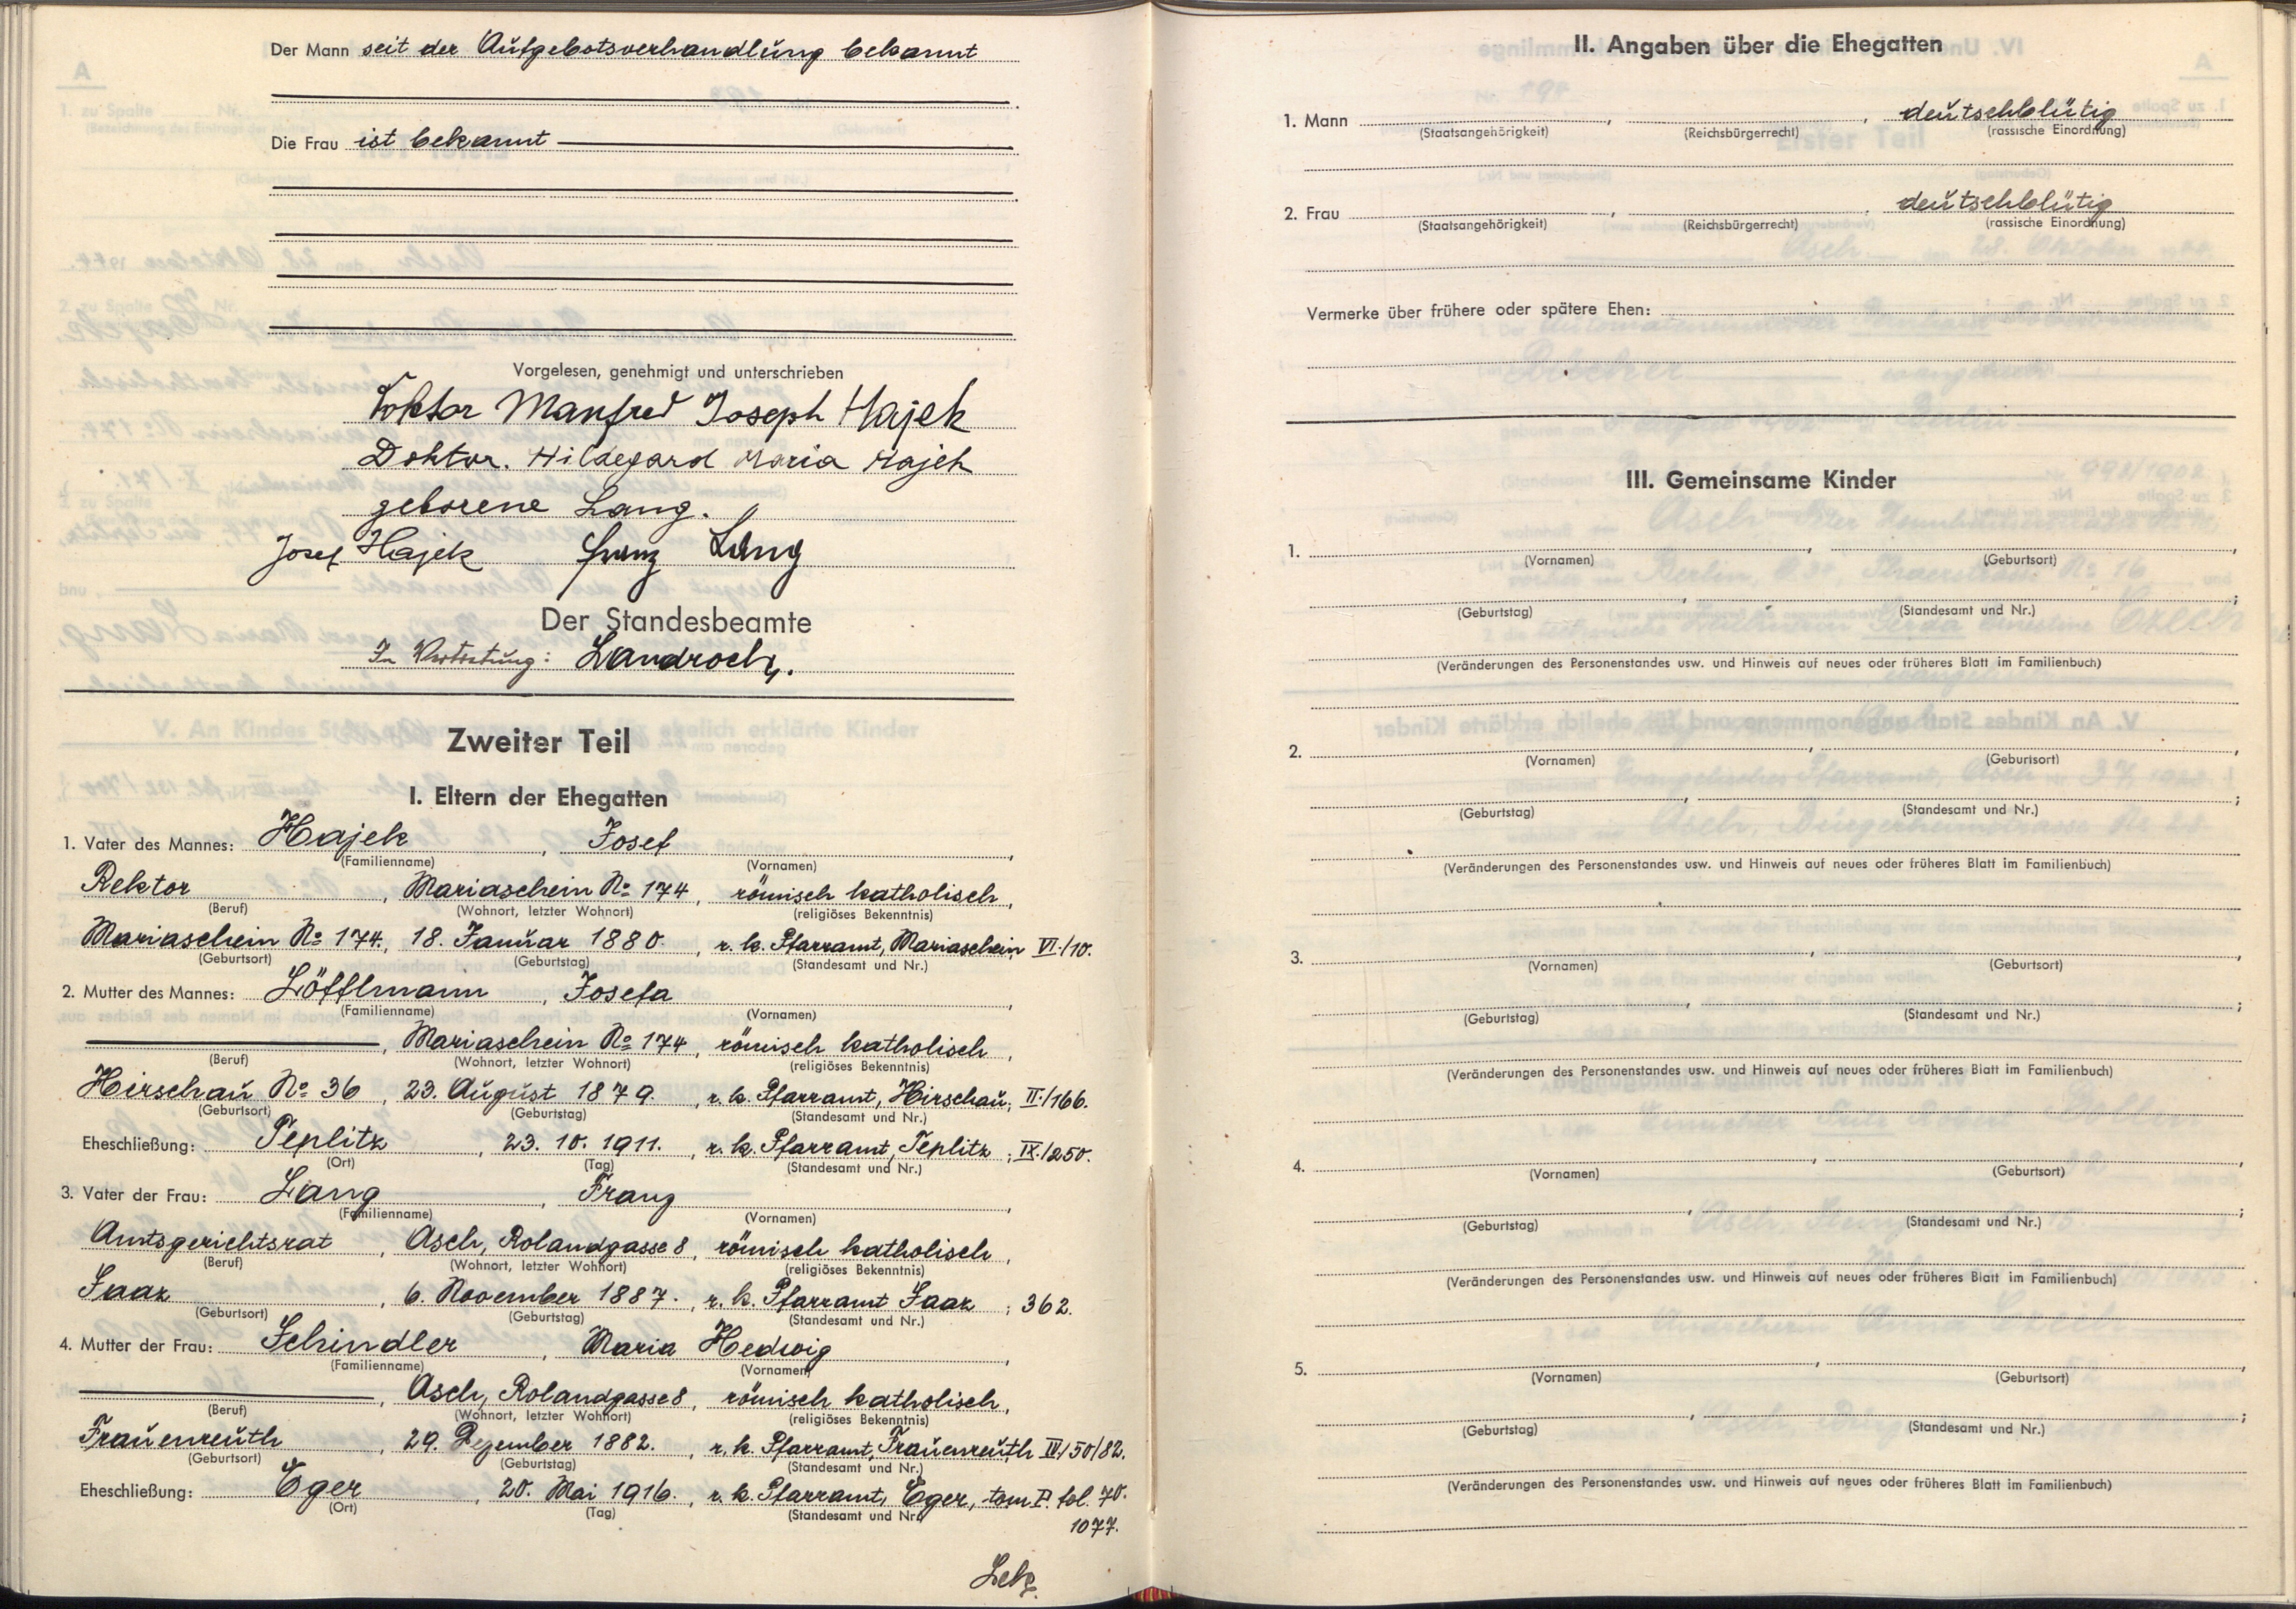 Der Mann seit der Aufgebotsverhandlung bekannt
Die Frau ist bekannt
Vorgelesen, genehmigt und unterschrieben
Doktor Manfred Joseph Hajek
Doktor. Hildegard Maria Hajek
geborene Lang.
Josef Hajek Franz Lang
Der Standesbeamte
In Vertretung: Landrock.
Zweiter Teil
I. Eltern der Ehegatten
1. Vater des Mannes: Hajek, Josef
(Familienname) (Vornamen)
Rektor, Mariaschein No 174, römisch katholisch,
(Beruf) (Wohnort, letzter Wohnort) (religiöses Bekenntnis)
Mariaschein No 174., 18. Januar 1880., r. k. Pfarramt, Mariaschein VI./10.
(Geburtsort) (Geburtstag) (Standesamt und Nr.)
2. Mutter des Mannes: Löfflmann, Josefa
(Familienname) (Vornamen)
, Mariaschein No 174, römisch katholisch,
(Beruf) (Wohnort, letzter Wohnort) (religiöses Bekenntnis)
Hirschau No 36, 23. August 1879., r. k. Pfarramt, Hirschau; II./166.
(Geburtsort) (Geburtstag) (Standesamt und Nr.)
Eheschließung: Teplitz, 23. 10. 1911., r. k. Pfarramt, Teplitz; IX./250.
(Ort) (Tag) (Standesamt und Nr.)
3. Vater der Frau: Lang, Franz
(Familienname) (Vornamen)
Amtsgerichtsrat, Asch, Rolandgasse 8, römisch katholisch,
(Beruf) (Wohnort, letzter Wohnort) (religiöses Bekenntnis)
Saaz, 6. November 1887., r. k. Pfarramt Saaz; 362.
(Geburtsort) (Geburtstag) (Standesamt und Nr.)
4. Mutter der Frau: Schindler, Maria Hedwig
(Familienname) (Vornamen)
, Asch, Rolandgasse 8, römisch katholisch,
(Beruf) (Wohnort, letzter Wohnort) (religiöses Bekenntnis)
Frauenreuth, 29. Dezember 1882., r. k. Pfarramt, Frauenreuth IV/50/82.
(Geburtsort) (Geburtstag) (Standesamt und Nr.)
Eheschließung: Eger, 20. Mai 1916., r. k. Pfarramt, Eger, tom P. fol. 70.
(Ort) (Tag) (Standesamt und Nr.)
1077.
II. Angaben über die Ehegatten
1. Mann , , deutschblütig
(Staatsangehörigkeit) (Reichsbürgerrecht) (rassische Einordnung)
2. Frau , , deutschblütig
(Staatsangehörigkeit) (Reichsbürgerrecht) (rassische Einordnung)
Vermerke über frühere oder spätere Ehen:
III. Gemeinsame Kinder
1. , ,
(Vornamen) (Geburtsort)
, ;
(Geburtstag) (Standesamt und Nr.)
(Veränderungen des Personenstandes usw. und Hinweis auf neues oder früheres Blatt im Familienbuch)
2. , ,
(Vornamen) (Geburtsort)
, ;
(Geburtstag) (Standesamt und Nr.)
(Veränderungen des Personenstandes usw. und Hinweis auf neues oder früheres Blatt im Familienbuch)
3. , ,
(Vornamen) (Geburtsort)
, ;
(Geburtstag) (Standesamt und Nr.)
(Veränderungen des Personenstandes usw. und Hinweis auf neues oder früheres Blatt im Familienbuch)
4. , ,
(Vornamen) (Geburtsort)
, ;
(Geburtstag) (Standesamt und Nr.)
(Veränderungen des Personenstandes usw. und Hinweis auf neues oder früheres Blatt im Familienbuch)
5. , ,
(Vornamen) (Geburtsort)
, ;
(Geburtstag) (Standesamt und Nr.)
(Veränderungen des Personenstandes usw. und Hinweis auf neues oder früheres Blatt im Familienbuch)